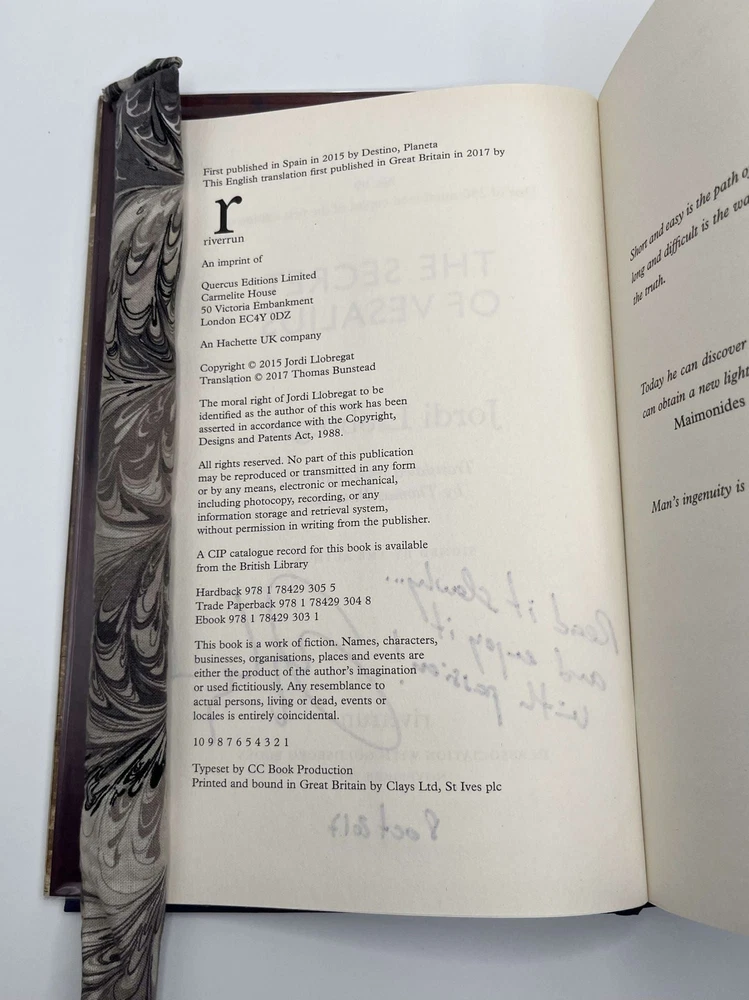 First published in Spain in 2015 by Destino, Planeta
This English translation first published in Great Britain in 2017 by
r
riverrun
An imprint of
Quercus Editions Limited
Carmelite House
50 Victoria Embankment
London EC4Y 0DZ
An Hachette UK company
Copyright © 2015 Jordi Llobregat
Translation © 2017 Thomas Bunstead
The moral right of Jordi Llobregat to be
identified as the author of this work has been
asserted in accordance with the Copyright,
Designs and Patents Act, 1988.
All rights reserved. No part of this publication
may be reproduced or transmitted in any form
or by any means, electronic or mechanical,
including photocopy, recording, or any
information storage and retrieval system,
without permission in writing from the publisher.
A CIP catalogue record for this book is available
from the British Library
Hardback 978 1 78429 305 5
Trade Paperback 978 1 78429 304 8
Ebook 978 1 78429 303 1
This book is a work of fiction. Names, characters,
businesses, organisations, places and events are
either the product of the author's imagination
or used fictitiously. Any resemblance to
actual persons, living or dead, events or
locales is entirely coincidental.
10 9 8 7 6 5 4 3 2 1
Typeset by CC Book Production
Printed and bound in Great Britain by Clays Ltd, St Ives plc
THE SECRET
OF VESALIUS
Jordi
Read it slowly...
and enjoy it
with passion!
8 oct 2017
Short and easy is the path
long and difficult is the
the truth.
Today he can discover
can obtain a new light
Maimonides
Man's ingenuity is